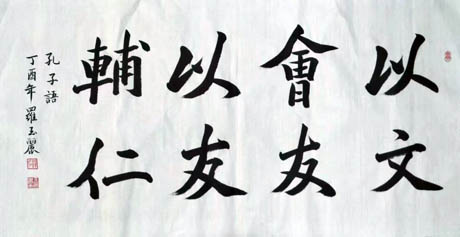 以文
會友
以友
輔仁
孔子語
丁酉年羅玉麗